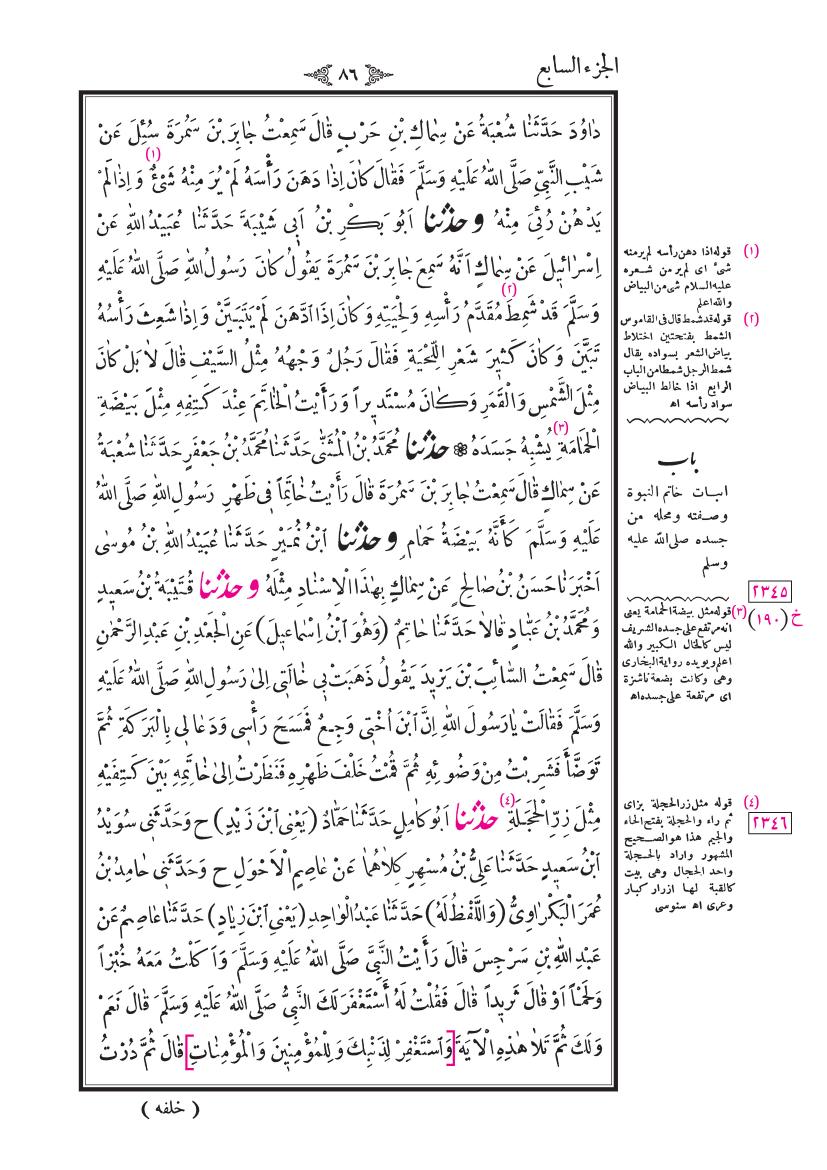 الجزء السابع
٨٦
دَاوُدَ حَدَّثَنَا شُعْبَةُ عَنْ سِمَاكِ بْنِ حَرْبٍ قَالَ سَمِعْتُ جَابِرَ بْنَ سَمُرَةَ سُئِلَ عَنْ
شَيْبِ النَّبِيِّ صَلَّى اللهُ عَلَيْهِ وَسَلَّمَ فَقَالَ كَانَ اِذَا دَهَنَ رَأْسَهُ لَمْ يُرَ مِنْهُ شَىْءٌ (١) وَاِذَا لَمْ
يَدْهُنْ رُئِىَ مِنْهُ وحَدَّثَنَا اَبُو بَكْرِ بْنُ اَبِى شَيْبَةَ حَدَّثَنَا عُبَيْدُ اللهِ عَنْ
اِسْرَائِيلَ عَنْ سِمَاكٍ اَنَّهُ سَمِعَ جَابِرَ بْنَ سَمُرَةَ يَقُولُ كَانَ رَسُولُ اللهِ صَلَّى اللهُ عَلَيْهِ
وَسَلَّمَ قَدْ شَمِطَ (٢) مُقَدَّمُ رَأْسِهِ وَلِحْيَتِهِ وَكَانَ اِذَا ادَّهَنَ لَمْ يَتَبَيَّنْ وَاِذَا شَعِثَ رَأْسُهُ
تَبَيَّنَ وَكَانَ كَثِيرَ شَعْرِ اللِّحْيَةِ فَقَالَ رَجُلٌ وَجْهُهُ مِثْلُ السَّيْفِ قَالَ لَا بَلْ كَانَ
مِثْلَ الشَّمْسِ وَالْقَمَرِ وَكَانَ مُسْتَدِيراً وَرَأَيْتُ الْخَاتَمَ عِنْدَ كَتِفِهِ مِثْلَ بَيْضَةِ
الْحَمَامَةِ (٣) يُشْبِهُ جَسَدَهُ ❁ حَدَّثَنَا مُحَمَّدُ بْنُ الْمُثَنَّى حَدَّثَنَا مُحَمَّدُ بْنُ جَعْفَرٍ حَدَّثَنَا شُعْبَةُ
عَنْ سِمَاكٍ قَالَ سَمِعْتُ جَابِرَ بْنَ سَمُرَةَ قَالَ رَأَيْتُ خَاتَماً فِى ظَهْرِ رَسُولِ اللهِ صَلَّى اللهُ
عَلَيْهِ وَسَلَّمَ كَأَنَّهُ بَيْضَةُ حَمَامٍ وحَدَّثَنَا ابْنُ نُمَيْرٍ حَدَّثَنَا عُبَيْدُ اللهِ بْنُ مُوسٰى
اَخْبَرَنَا حَسَنُ بْنُ صَالِحٍ عَنْ سِمَاكٍ بِهٰذَا الْاِسْنَادِ مِثْلَهُ وحَدَّثَنَا قُتَيْبَةُ بْنُ سَعِيدٍ
وَمُحَمَّدُ بْنُ عَبَّادٍ قَالَا حَدَّثَنَا حَاتِمٌ (وَهُوَ ابْنُ اِسْمَاعِيلَ) عَنِ الْجَعْدِ بْنِ عَبْدِ الرَّحْمٰنِ
قَالَ سَمِعْتُ السَّائِبَ بْنَ يَزِيدَ يَقُولُ ذَهَبَتْ بِى خَالَتِى اِلٰى رَسُولِ اللهِ صَلَّى اللهُ عَلَيْهِ
وَسَلَّمَ فَقَالَتْ يَا رَسُولَ اللهِ اِنَّ ابْنَ اُخْتِى وَجِعٌ فَمَسَحَ رَأْسِى وَدَعَا لِى بِالْبَرَكَةِ ثُمَّ
تَوَضَّأَ فَشَرِبْتُ مِنْ وَضُوئِهِ ثُمَّ قُمْتُ خَلْفَ ظَهْرِهِ فَنَظَرْتُ اِلٰى خَاتَمِهِ بَيْنَ كَتِفَيْهِ
مِثْلَ زِرِّ الْحَجَلَةِ (٤) حَدَّثَنَا اَبُو كَامِلٍ حَدَّثَنَا حَمَّادٌ (يَعْنِى ابْنَ زَيْدٍ) ح وَحَدَّثَنِى سُوَيْدُ
ابْنُ سَعِيدٍ حَدَّثَنَا عَلِىُّ بْنُ مُسْهِرٍ كِلَاهُمَا عَنْ عَاصِمٍ الْاَحْوَلِ ح وَحَدَّثَنِى حَامِدُ بْنُ
عُمَرَ الْبَكْرَاوِىُّ (وَاللَّفْظُ لَهُ) حَدَّثَنَا عَبْدُ الْوَاحِدِ (يَعْنِى ابْنَ زِيَادٍ) حَدَّثَنَا عَاصِمٌ عَنْ
عَبْدِ اللهِ بْنِ سَرْجِسَ قَالَ رَأَيْتُ النَّبِىَّ صَلَّى اللهُ عَلَيْهِ وَسَلَّمَ وَاَكَلْتُ مَعَهُ خُبْزاً
وَلَحْماً اَوْ قَالَ ثَرِيداً قَالَ فَقُلْتُ لَهُ أَسْتَغْفَرَ لَكَ النَّبِىُّ صَلَّى اللهُ عَلَيْهِ وَسَلَّمَ قَالَ نَعَمْ
وَلَكَ ثُمَّ تَلَا هٰذِهِ الْاٰيَةَ [وَاسْتَغْفِرْ لِذَنْبِكَ وَلِلْمُؤْمِنِينَ وَالْمُؤْمِنَاتِ] قَالَ ثُمَّ دُرْتُ
( خلفه )
(١) قوله اذا دهن رأسه لم ير منه
شىء اى لم ير من شعره
عليه السلام شىء من البياض
والله اعلم
(٢) قوله قد شمط قال فى القاموس
الشمط بفتحتين اختلاط
بياض الشعر بسواده يقال
شمط الرجل شمطا من الباب
الرابع اذا خالط البياض
سواد رأسه اه
باب
اثبات خاتم النبوة
وصفته ومحله من
جسده صلى الله عليه
وسلم
٢٣٤٥
خ (١٩٠)
(٣) قوله مثل بيضة الحمامة يعنى
انه مرتفع على جسده الشريف
ليس كالخال الكبير والله
اعلم ويؤيده رواية البخارى
وهى وكانت بضعة ناشزة
اى مرتفعة على جسده اه
(٤) قوله مثل زر الحجلة بزاى
ثم راء والحجلة بفتح الحاء
والجيم هذا هو الصحيح
المشهور واراد بالحجلة
واحد الحجال وهى بيت
كالقبة لها ازرار كبار
وعرى اه سنوسى
٢٣٤٦